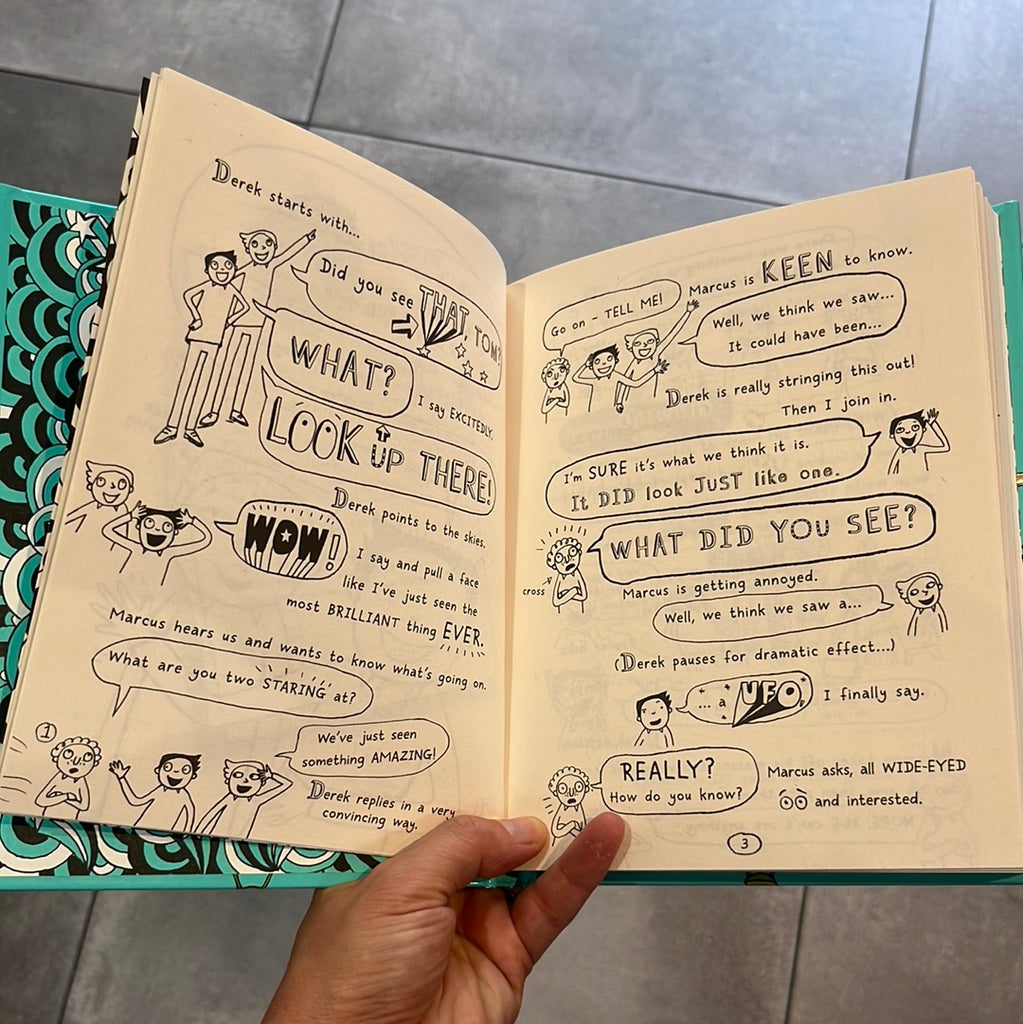 Derek starts with...
Did you see
THAT, TOM?
WHAT?
I say EXCITEDLY.
LOOK UP THERE!
Derek points to the skies.
WOW!
I say and pull a face
like I've just seen the
most BRILLIANT thing EVER.
Marcus hears us and wants to know what's going on.
What are you two STARING at?
1
We've just seen
something AMAZING!
Derek replies in a very
convincing way.
Marcus is KEEN to know.
Go on - TELL ME!
Well, we think we saw...
It could have been...
Derek is really stringing this out!
Then I join in.
I'm SURE it's what we think it is.
It DID look JUST like one.
WHAT DID YOU SEE?
cross
Marcus is getting annoyed.
Well, we think we saw a...
(Derek pauses for dramatic effect...)
... a UFO,
I finally say.
REALLY?
How do you know?
Marcus asks, all WIDE-EYED
and interested.
3